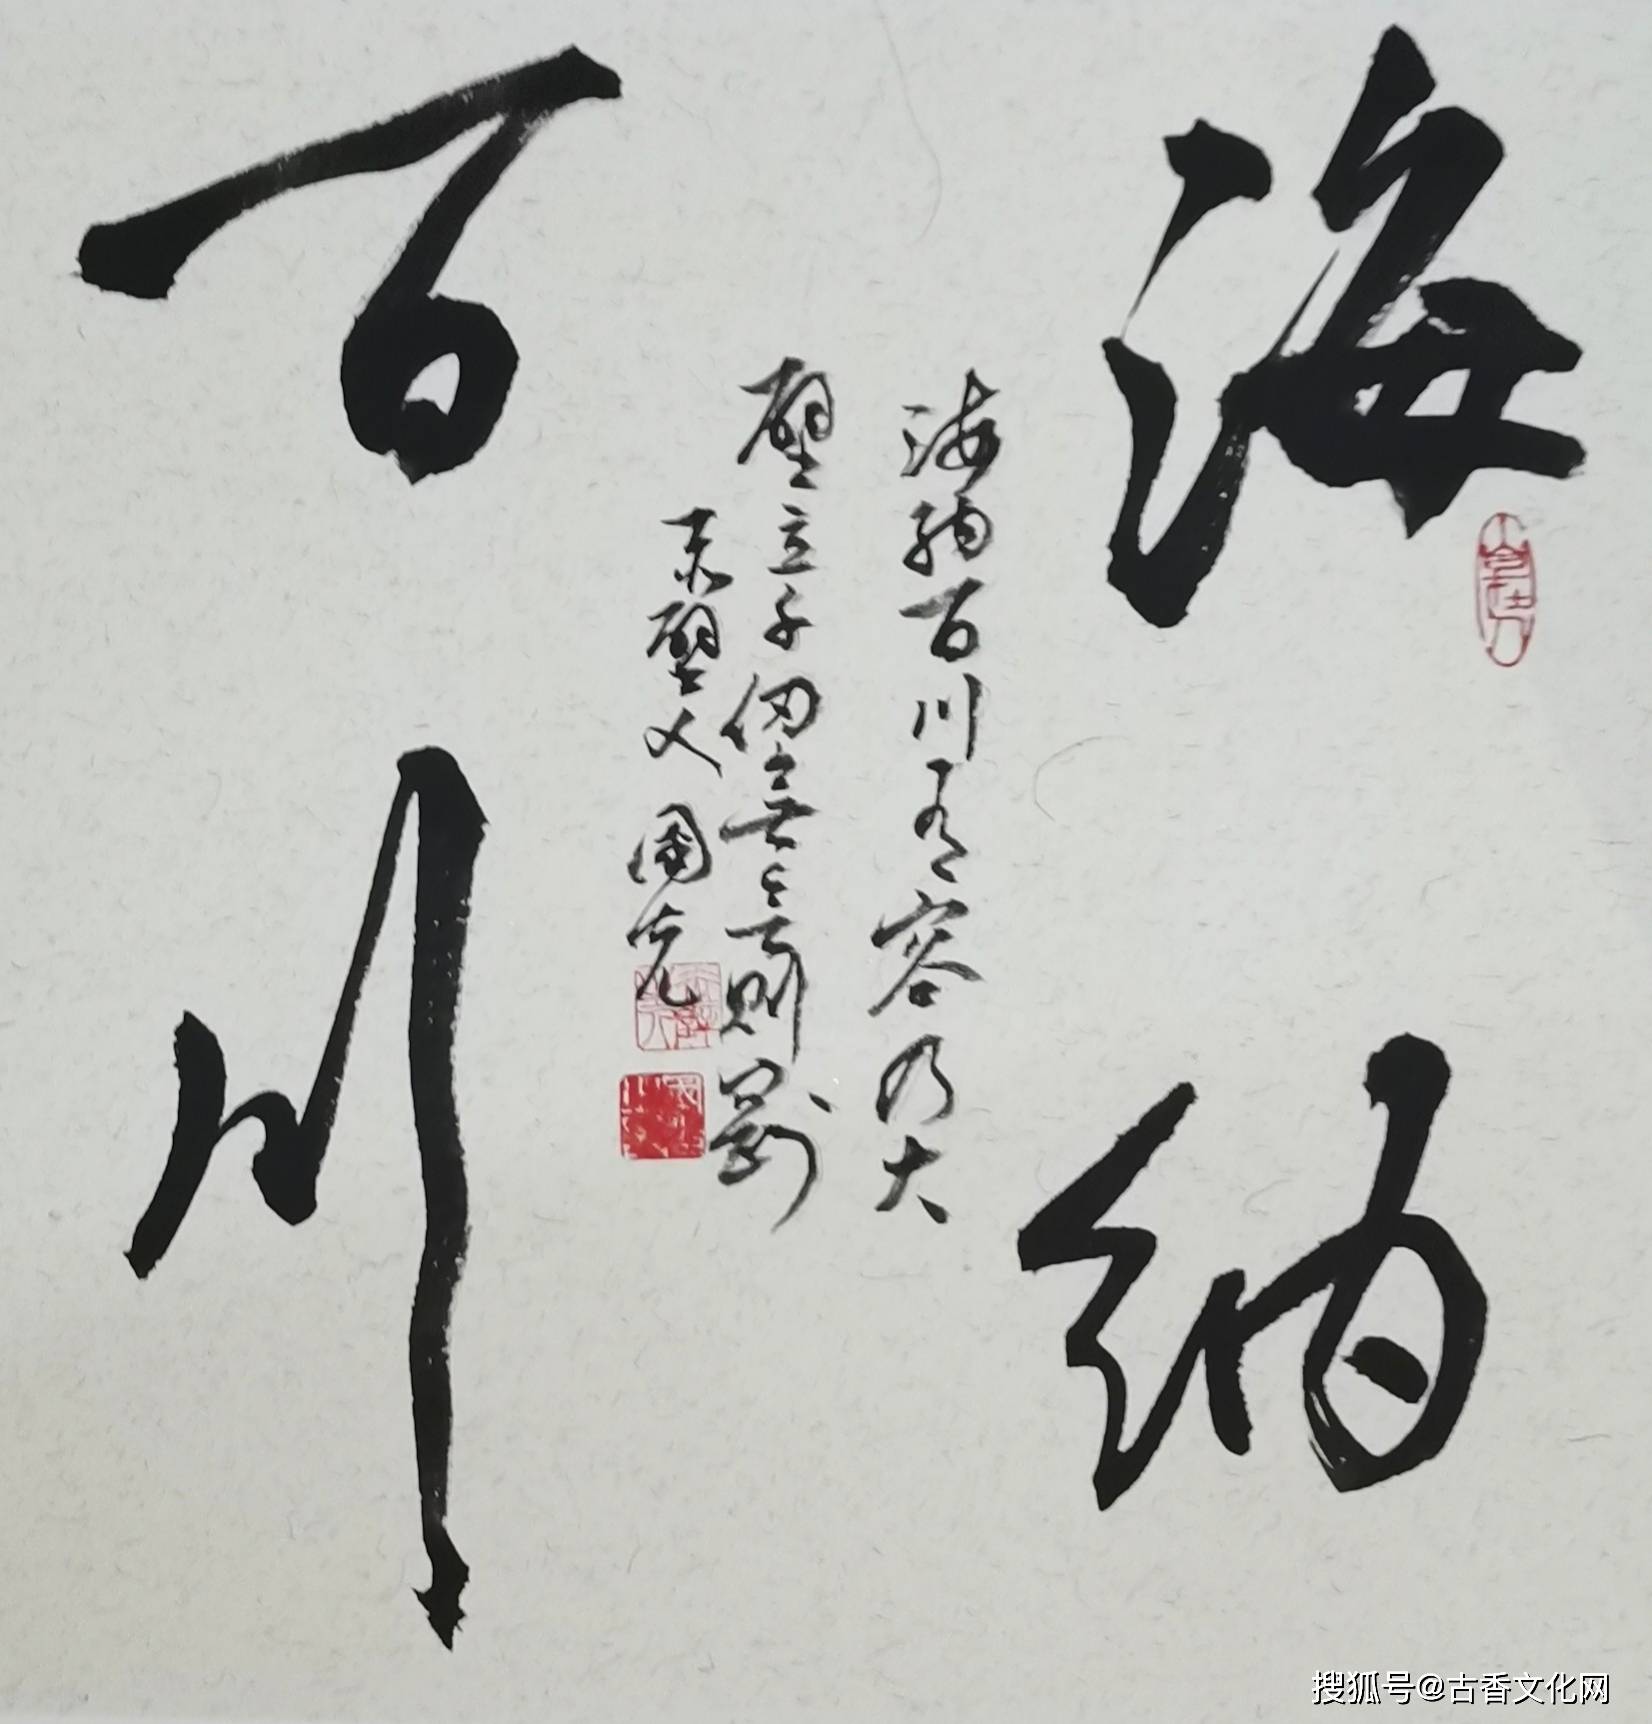 海纳
百川
海纳百川有容乃大
壁立千仞無欲则剛
赤壁人
搜狐号@古香文化网